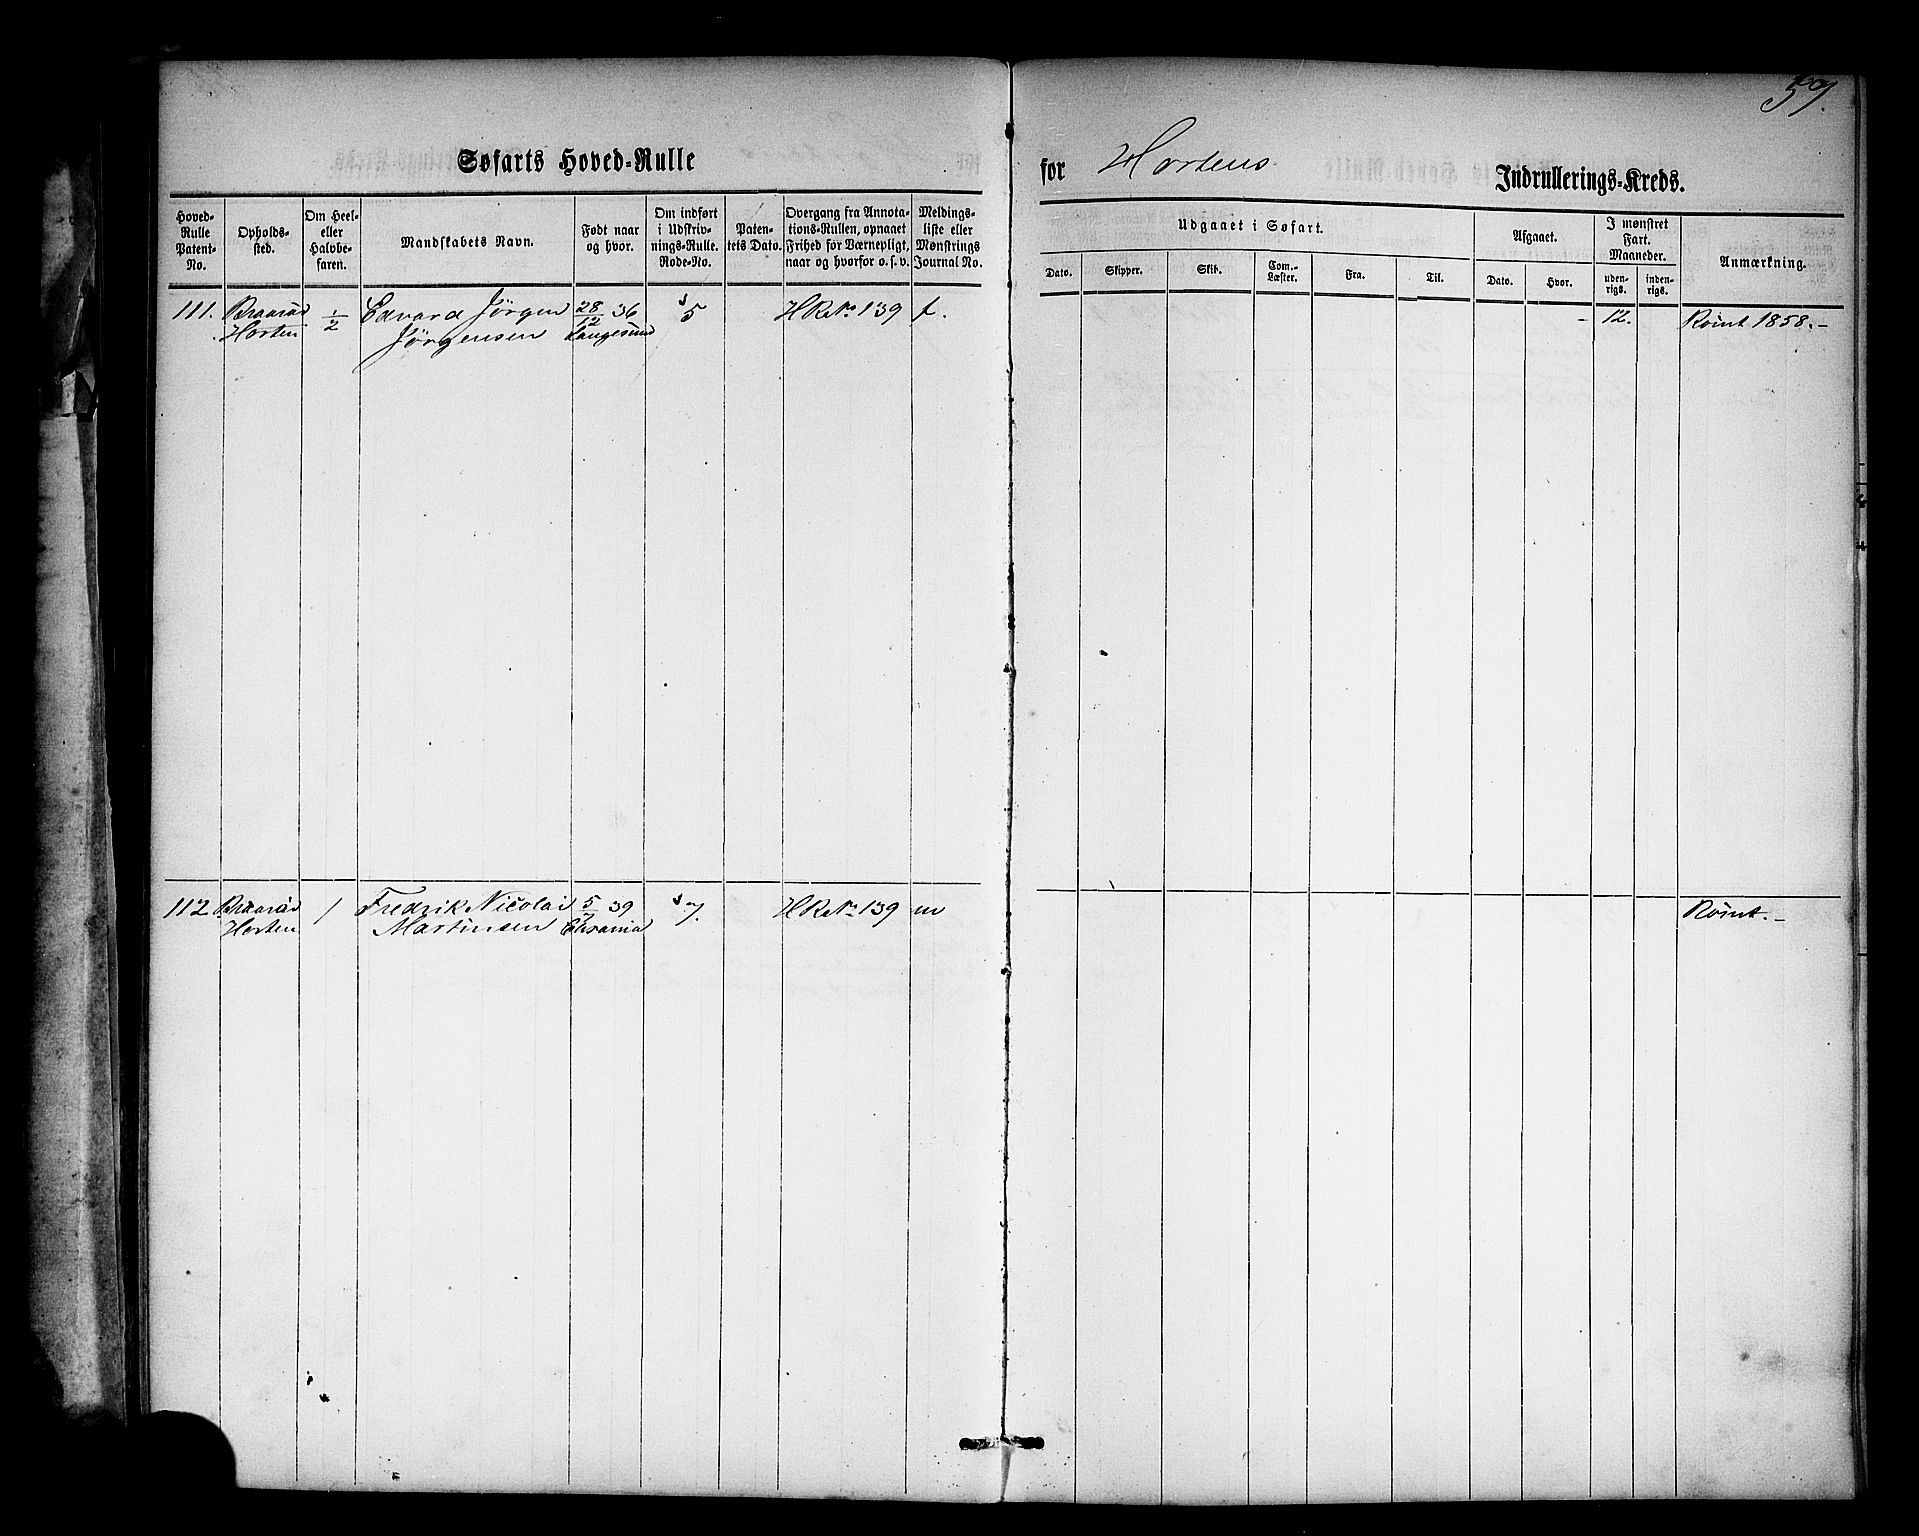 59.
Søfarts Hoved-Rulle
for Hortens Indrullerings-Kreds.
Hoved-Rulle Patent-No.
Opholds-sted.
Om Heel- eller Halvbe-faren.
Mandskabets Navn.
Født naar og hvor.
Om indført i Udskriv-nings-Rulle. Rode-No.
Paten-tets Dato.
Overgang fra Annota-tions-Rullen, opnaaet Frihed for Værnepligt, naar og hvorfor o. s. v.
Meldings-liste eller Mønstrings Journal No.
Udgaaet i Søfart.
Dato.
Skipper.
Skib.
Com.-Læster.
Fra.
Til.
Afgaaet.
Dato.
Hvor.
I mønstret Fart. Maaneder.
uden-rigs.
inden-rigs.
Anmærkning.
111. Braarud 1/2 Edvard Jörgen 28/12 36 5 HR No 139 f. - 12. 1858.-
Horten Jörgensen Langesund
112. Braarud 1 Fredrik Nicolai 5/7 39 7. HR No 139 m
Horten Martinsen Chrania